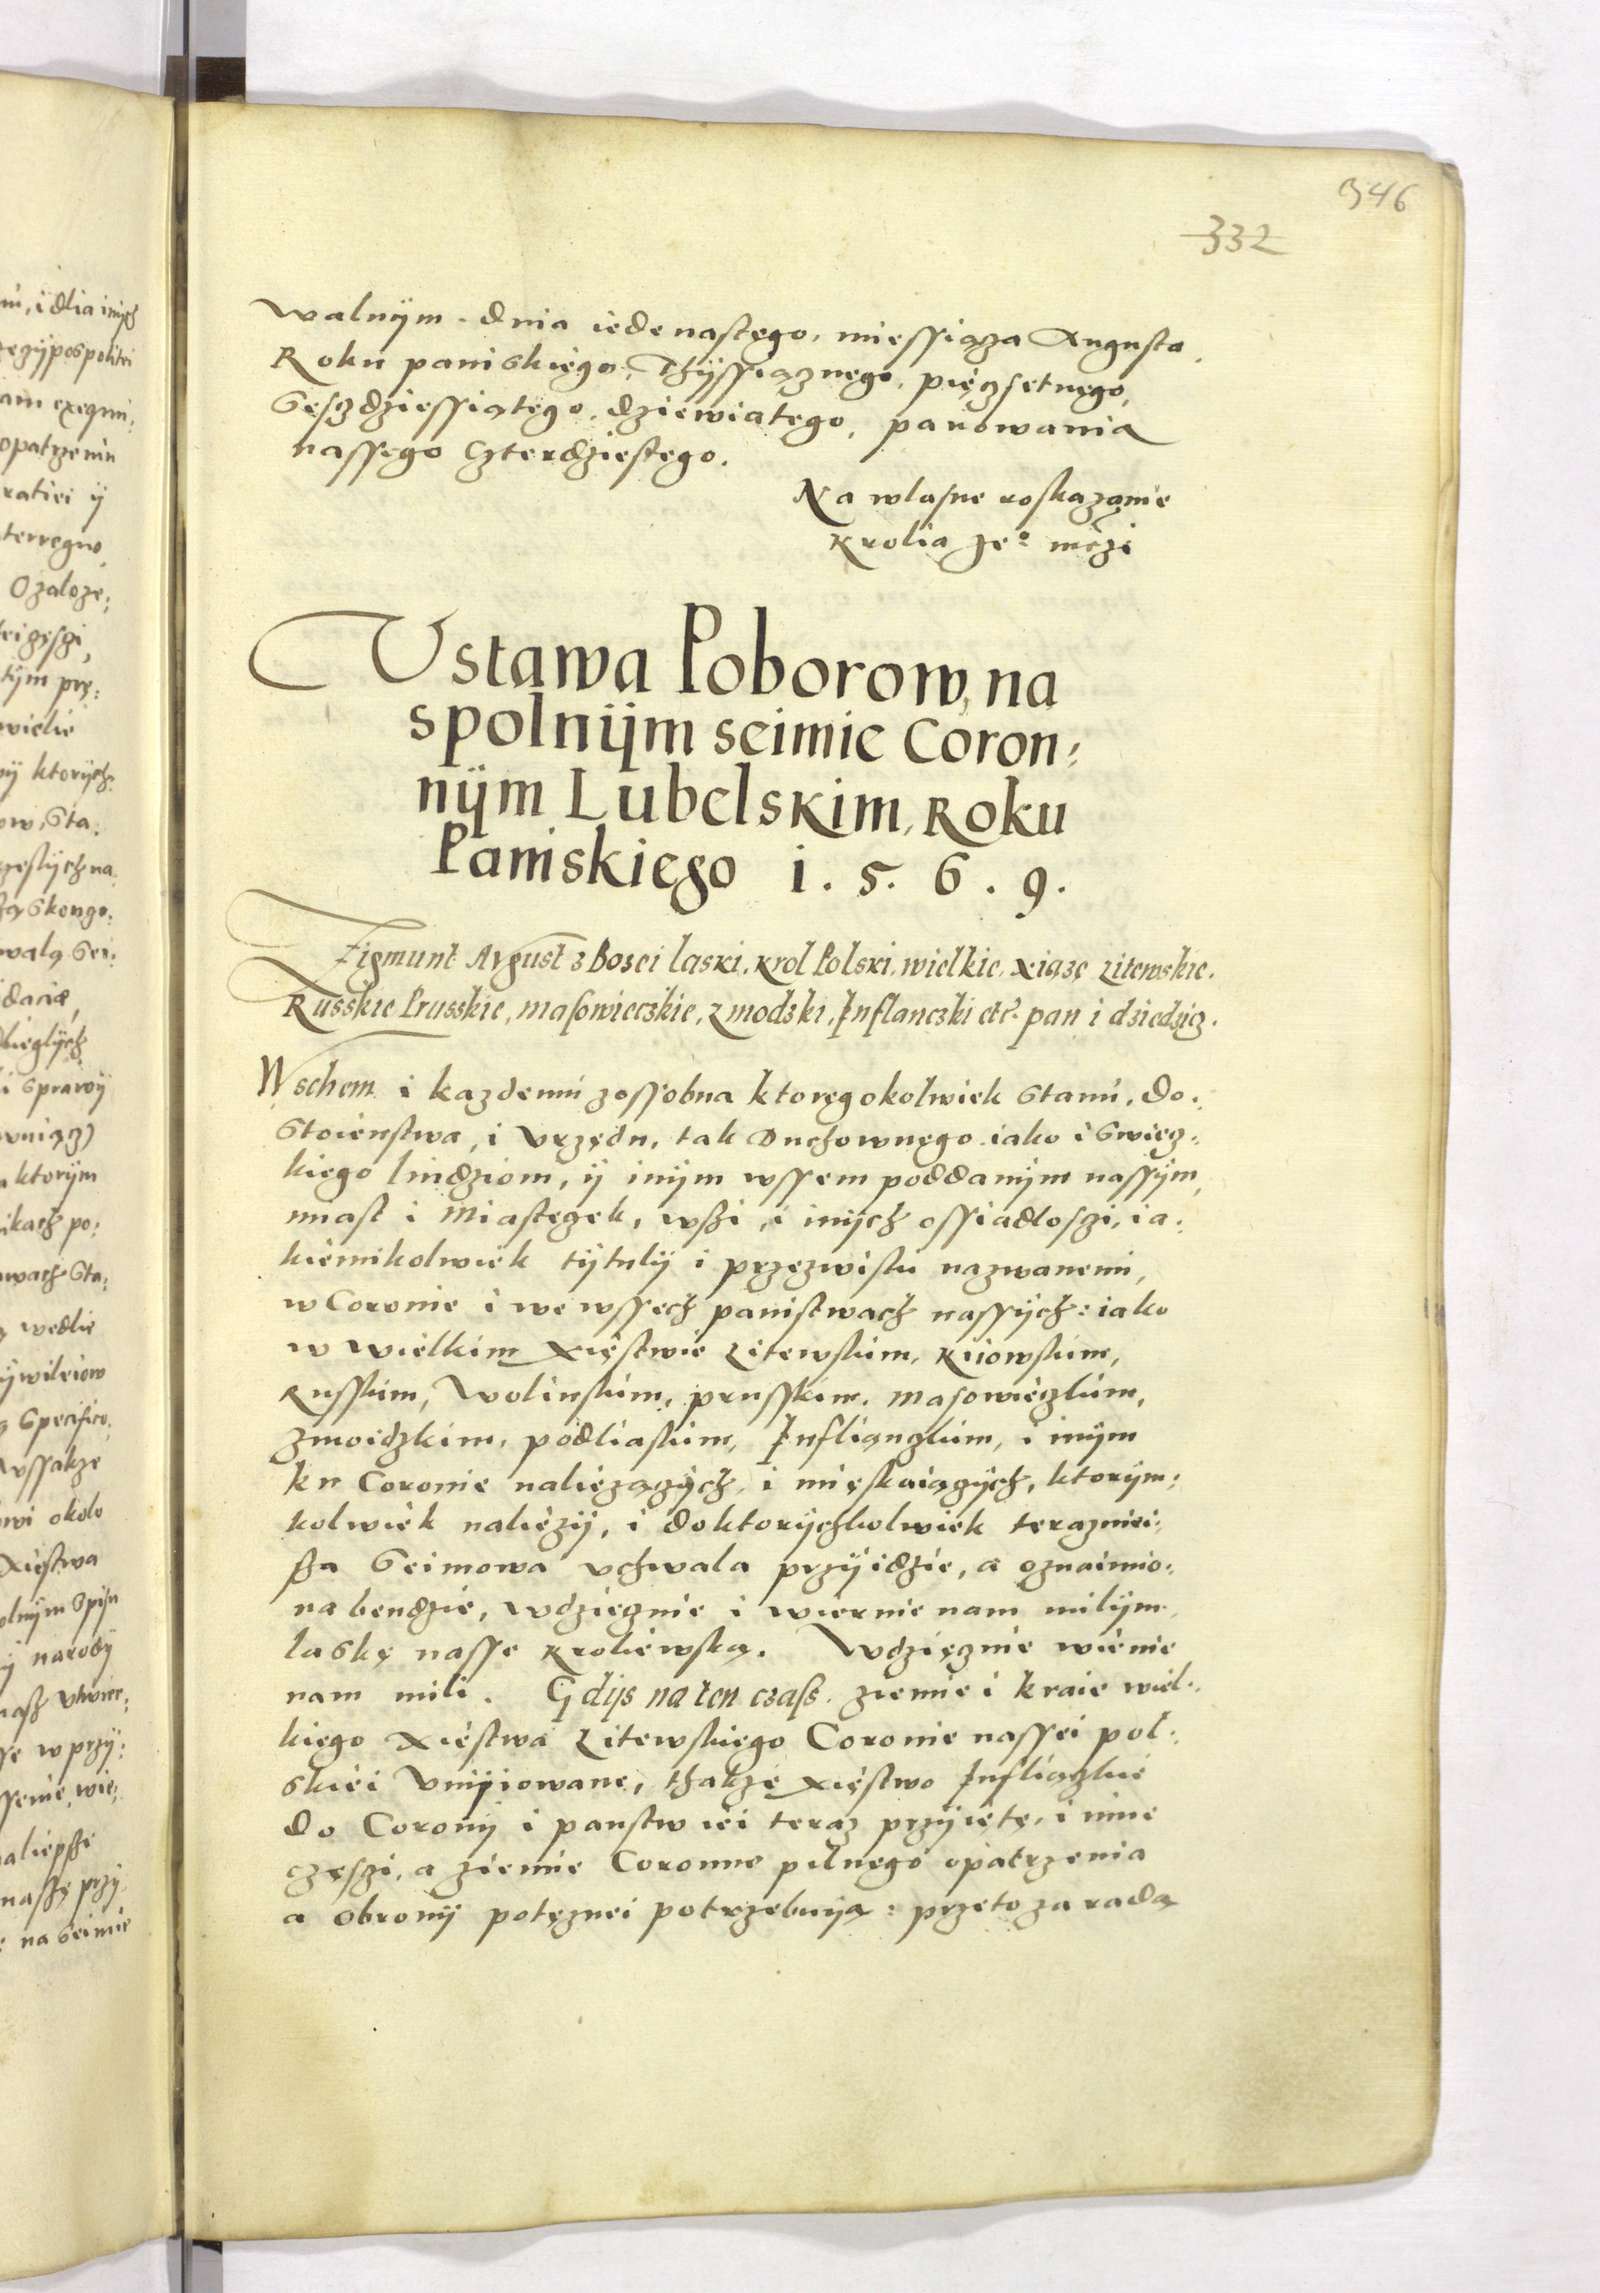 946
332
walnÿm. dnia iedenastęgo, miessiącza Augusta,
Roku paniskiego, Thÿssiącznego, pięczsetnęgo,
Sęsczdziessiątego, dziewiatego, panowania
nassęgo Czterdziestego.
Na wlasne roskazanie
Krolia Je° mczi
Ustawa Poborow, na
spolnijm seimie Coron:
nijm Lubelskim, Roku
Paniskiego i. 5. 6. 9.
Zigmunt August z Bozei laski, Krol Polski, wielkie, xiąże Litewskie,
Russkie Prusskie, masowieczkie, zmodzki, Inflanczki etc. pan i dziedzicz.
Wschem i kazdemu zossobna ktoręgokolwiek stanu, do:
stoienstwa, i vrzędu, tak Duchownęgo iako i swiecz:
kiego liudziom, ÿ inÿm wssem poddanÿm nassÿm,
miast i miasteczek, wszi, i inÿch ossiadłosczi, ia:
kiemikolwiek tÿtulÿ i przęzwiski nazwanemi,
w Coronie i we wssech panistwach nassÿch: iako
w wielkim xięstwie Litewskim, Kiiowskim,
Russkim, Wolinskim, prusskim, masowieczkim,
zmoidzkim, podliaskim, Infliąnczkim, i inÿm
ku Coronie naliezączÿch, i mięskaiączÿch, ktorÿm:
kolwiek naliezÿ, i doktorÿchkolwiek terazniei:
sza Seimowa vchwala przÿidzie, a oznaimio:
na bendzie, wdzięcznie i wiernie nam milÿm,
laskę nasse Kroliewską. Wdzięcznie wiernie
nam mili. Gdijs na ten czasz. ziemie i kraie wiel:
kiego xięstwa Litewskiego Coronie nassei pol:
skiei vnÿiowane, thakze xięstwo Infliąnczkie
do Coronÿ i panstw iei teraz przÿiętę, i inne
częsczi, a ziemie Coronne pilnęgo opatrzenia
a obronÿ potęznei potrzebuiją: przeto za radą